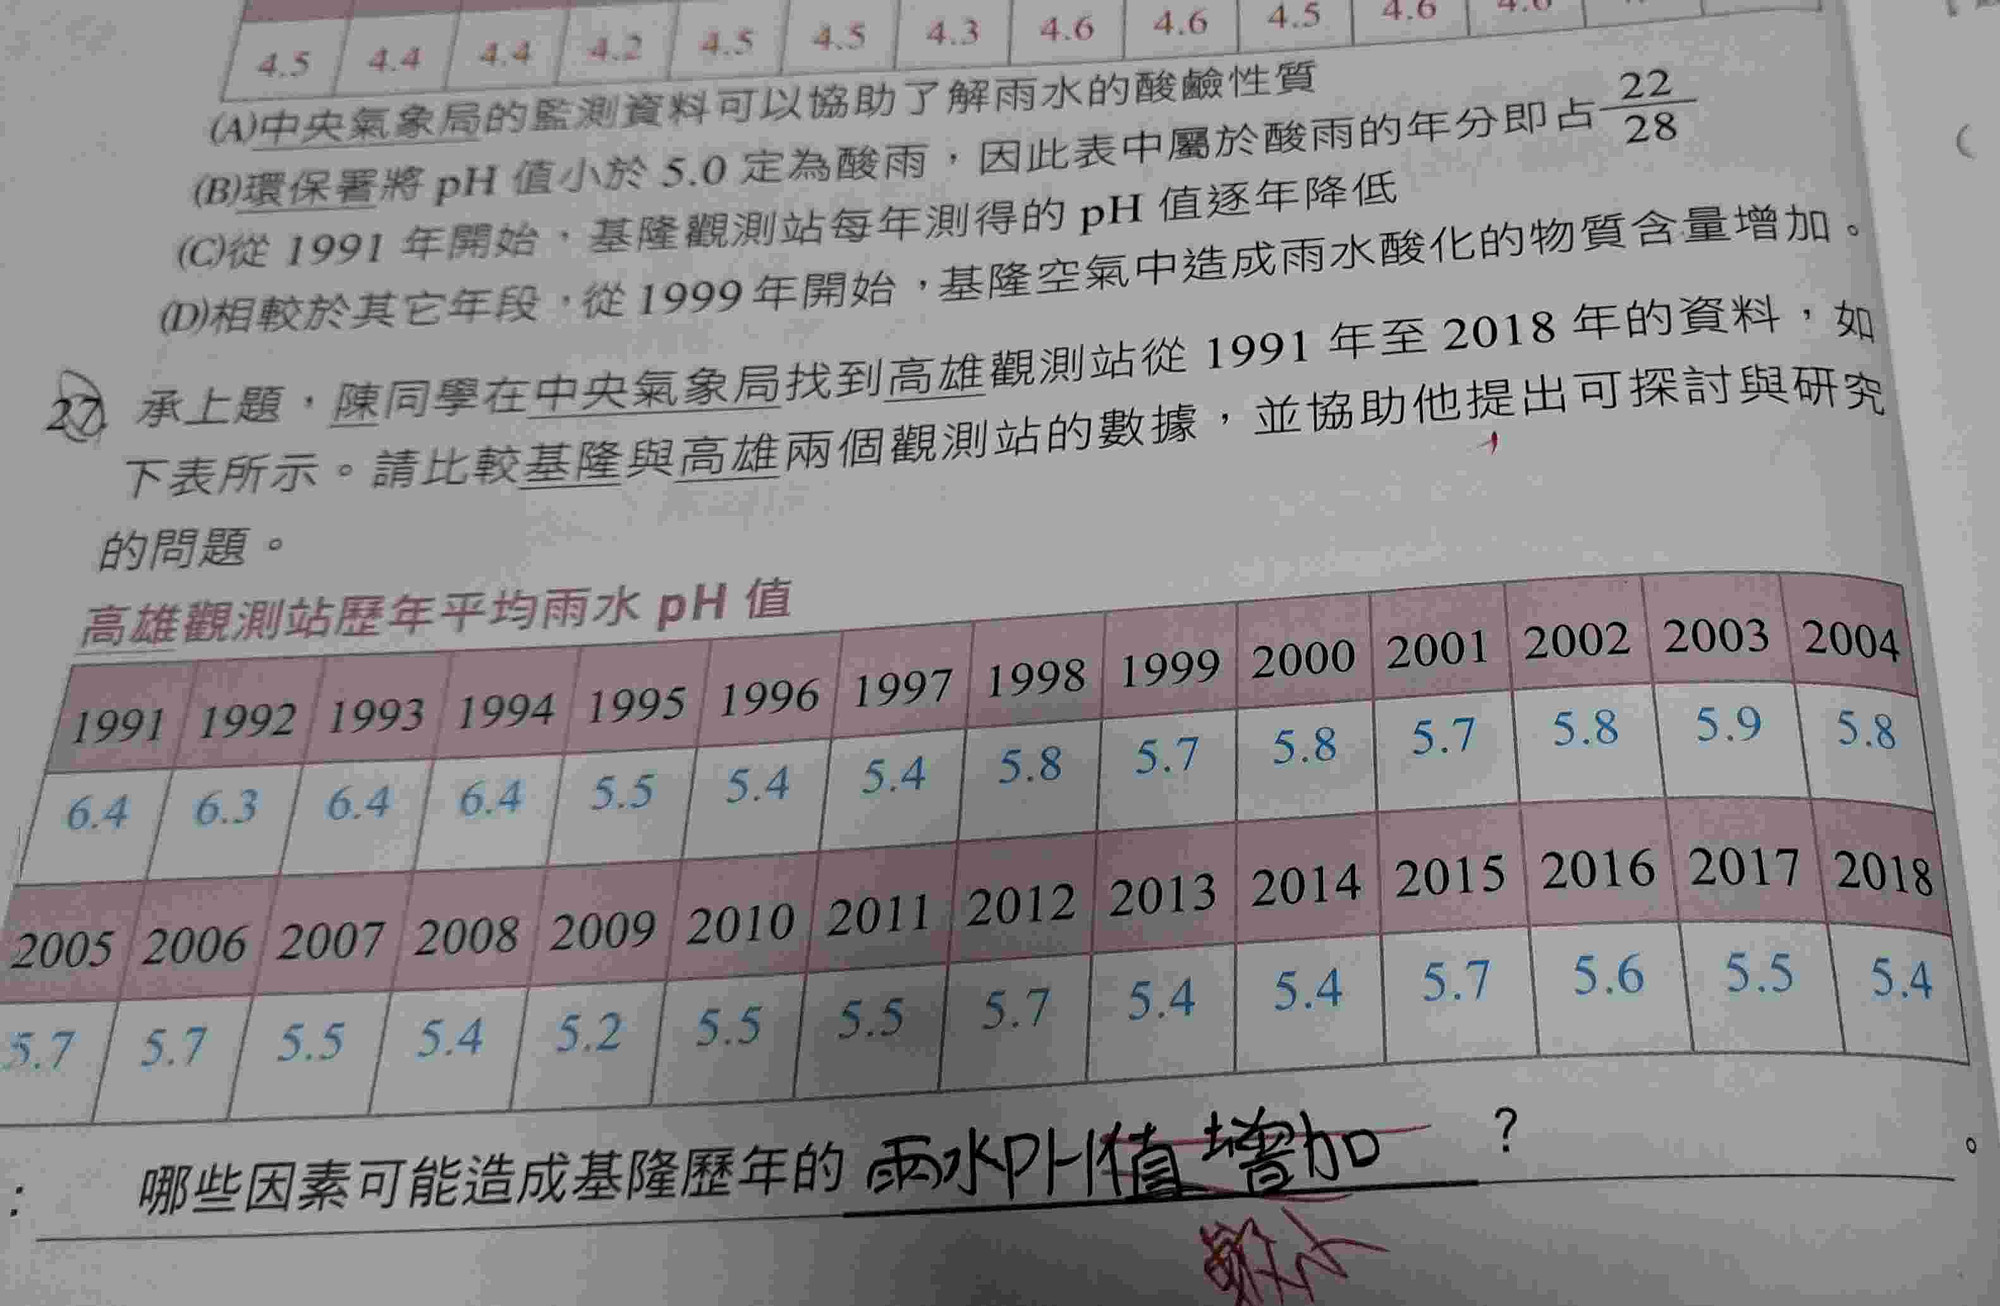 4.5 4.4 4.4 4.2 4.5 4.5 4.3 4.6 4.6 4.5 4.6
(A)中央氣象局的監測資料可以協助了解雨水的酸鹼性質
(B)環保署將 pH 值小於 5.0 定為酸雨，因此表中屬於酸雨的年分即占 22/28
(C)從 1991 年開始，基隆觀測站每年測得的 pH 值逐年降低
(D)相較於其它年段，從 1999 年開始，基隆空氣中造成雨水酸化的物質含量增加。
27. 承上題，陳同學在中央氣象局找到高雄觀測站從 1991 年至 2018 年的資料，如
下表所示。請比較基隆與高雄兩個觀測站的數據，並協助他提出可探討與研究
的問題。
高雄觀測站歷年平均雨水 pH 值
1991 1992 1993 1994 1995 1996 1997 1998 1999 2000 2001 2002 2003 2004
6.4 6.3 6.4 6.4 5.5 5.4 5.4 5.8 5.7 5.8 5.7 5.8 5.9 5.8
2005 2006 2007 2008 2009 2010 2011 2012 2013 2014 2015 2016 2017 2018
5.7 5.7 5.5 5.4 5.2 5.5 5.5 5.7 5.4 5.4 5.7 5.6 5.5 5.4
： 哪些因素可能造成基隆歷年的 雨水PH值增加 ？ 。